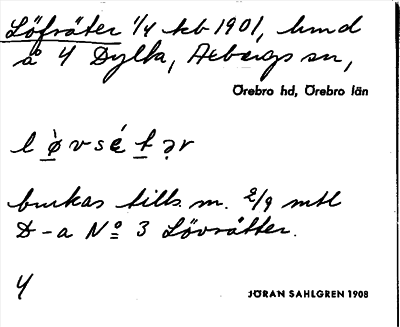 Löfsäter 1/4 kb 1901, hmd
å Y Dylta, Axbergs sn,
Örebro hd, Örebro län
l ø̀ v s é t ə r
brukas tills. m. 2/9 mtl
D-a No 3 Lövsätter.
Y
JÖRAN SAHLGREN 1908